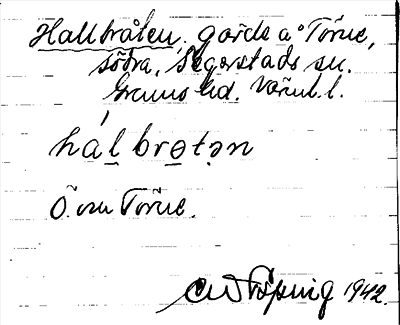 Hallbråten, gärde a° Törne,
södra, Segerstads sn.
Grums hd. Värml. l.
hálbrətən
Ö. om Törne.
1942.